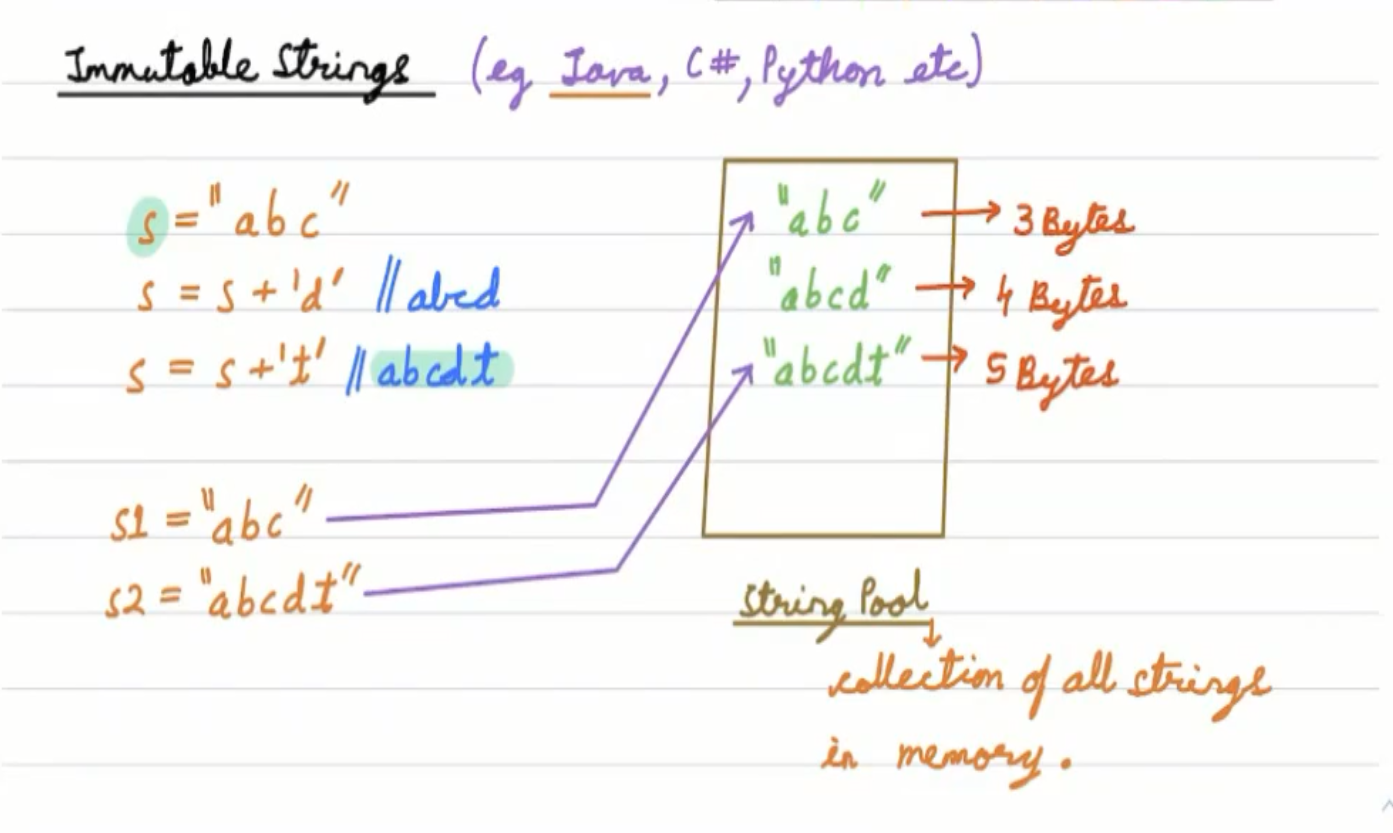 Immutable Strings (eg Java, C#, Python etc)
s = "abc"
s = s + 'd' // abcd
s = s + 't' // abcdt
s1 = "abc"
s2 = "abcdt"
"abc" → 3 Bytes
"abcd" → 4 Bytes
"abcdt" → 5 Bytes
String Pool
collection of all strings
in memory.